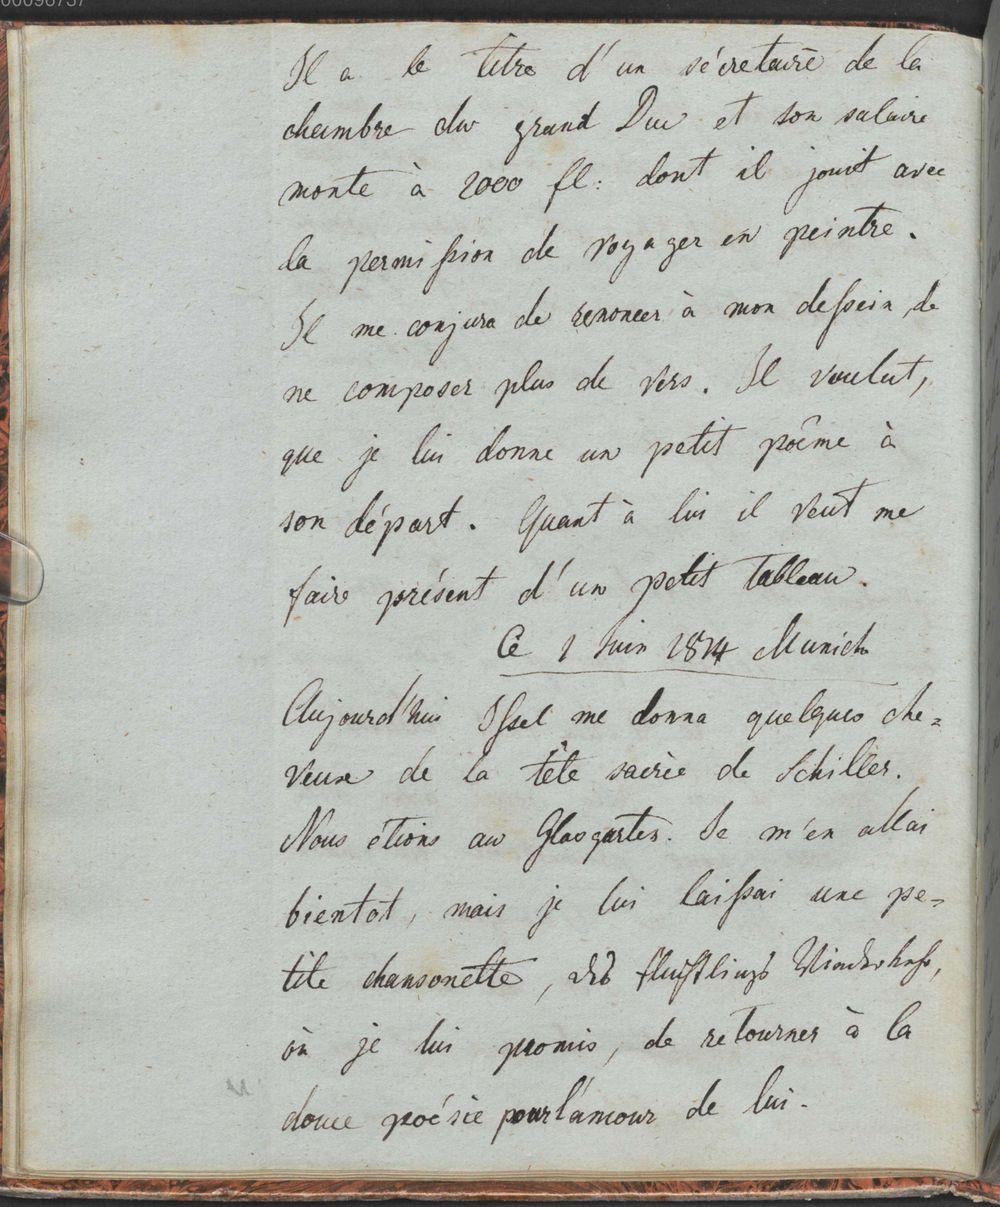 00098737
Il a le titre d'un sécretaire de la
chambre du grand Duc et son salaire
monte à 2000 fl: dont il jouit avec
la permißion de voyager en peintre.
Il me conjura de renoncer à mon deßein, de
ne composer plus de vers. Il voulut,
que je lui donne un petit poême à
son départ. Quant à lui il veut me
faire présent d'un petit tableau.
Ce 1 Juin 1814 Munich
Aujourd'hui Ißel me donna quelques che=
veux de la tête sacrée de Schiller.
Nous étions au Glasgarten. Je m'en allai
bientot, mais je lui laißai une pe=
tite chansonette, des Flüchtlings Wiederkehr,
où je lui promis, de retourner à la
douce poésie pour l'amour de lui.